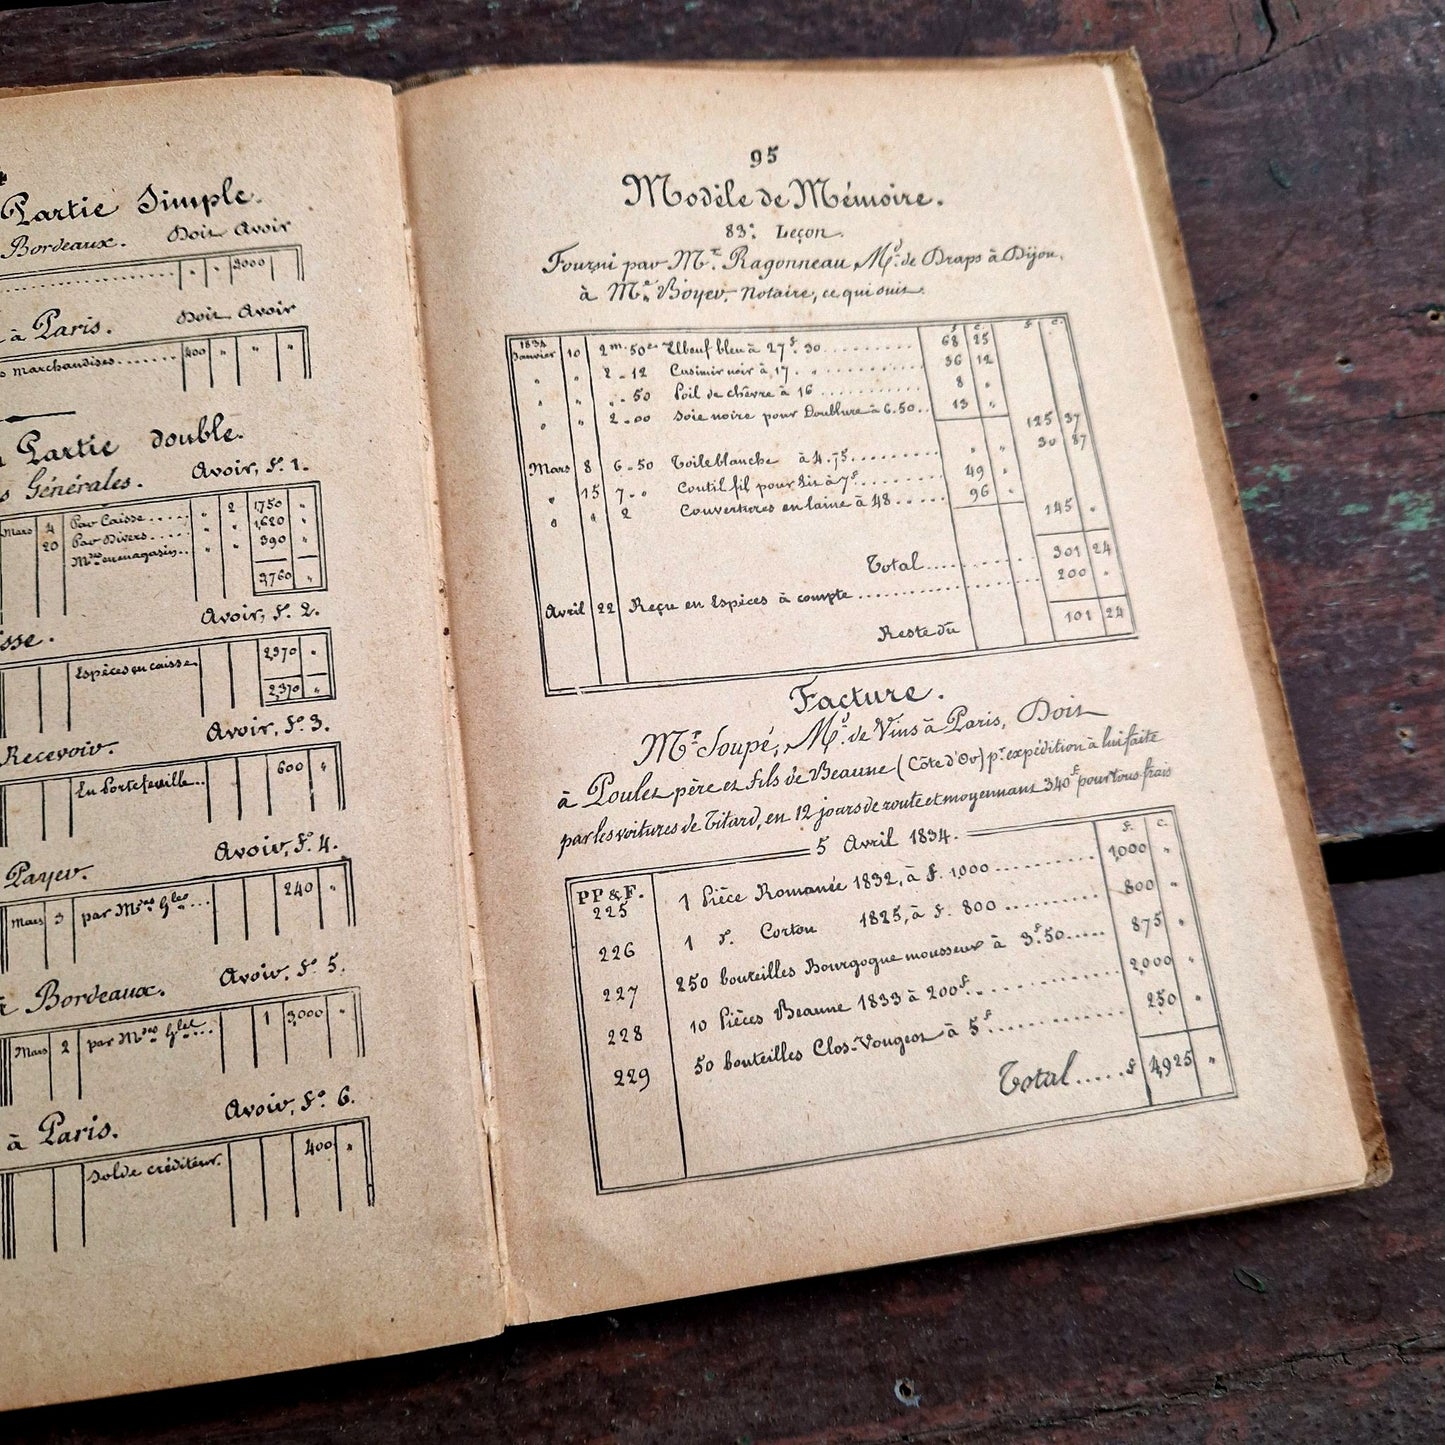 Partie Simple.
Bordeaux. Doit Avoir
" " 3000
à Paris. Doit Avoir
marchandises....... 400 " " "
Partie double.
Générales. Avoir, F. 1.
Mars 4 Par Caisse..... " 2 1750 "
20 Par Divers..... " " 1,620 "
Mses en magasin.. " " 390 "
3,760 "
Avoir, F. 2.
Espèces en caisse. 2,370 "
2,370 "
Recevoir. Avoir, Fo. 3.
En Portefeuille... 600 "
Payer. Avoir, F. 4.
Mars 3 par Mses Gles... 240 "
à Bordeaux. Avoir, Fo. 5.
Mars 2 par Mses Gles... 1 3,000 "
à Paris. Avoir, Fo. 6.
Solde créditeur. 400 "
95
Modèle de Mémoire.
83e Leçon.
Fourni par Mr. Ragonneau, Md. de Draps à Dijon,
à Me. Boyer, Notaire, ce qui suit.
f c. f c.
1834
Janvier 10 2m. 50c. Elbeuf bleu à 27f. 30.......... 68 25
" " 2 - 12 Casimir noir à 17. "........... 36 12
" " " - 50 Poil de chèvre à 16........... 8 "
" " 2 - 00 Soie noire pour Doublure à 6.50.. 13 " 125 37
Mars 8 6 - 50 Toile blanche à 4.75.......... " " 30 87
" 15 7 - " Coutil fil pour lit à 7f......... 49 "
" " 2 Couvertures en laine à 48...... 96 " 145 "
Total.......... 301 24
Avril 22 Reçu en Espèces à compte................ 200 "
Reste dû 101 24
Facture.
Mr. Soupé, Md. de Vins à Paris, Doit
à Poulet père et fils de Beaune (Côte d'Or) pr. expédition à lui faite
par les voitures de Titard, en 12 jours de route et moyennant 340f pour tous frais
5 Avril 1834.
f. c.
PP & F.
225 1 Pièce Romanée 1832, à F. 1,000........... 1,000 "
226 1 d. Corton 1825, à F. 800........... 800 "
227 250 bouteilles Bourgogne mousseux à 3f.50..... 875 "
228 10 Pièces Beaune 1833 à 200f............... 2,000 "
229 50 bouteilles Clos-Vougeot à 5f............... 250 "
Total..... F 4,925 "